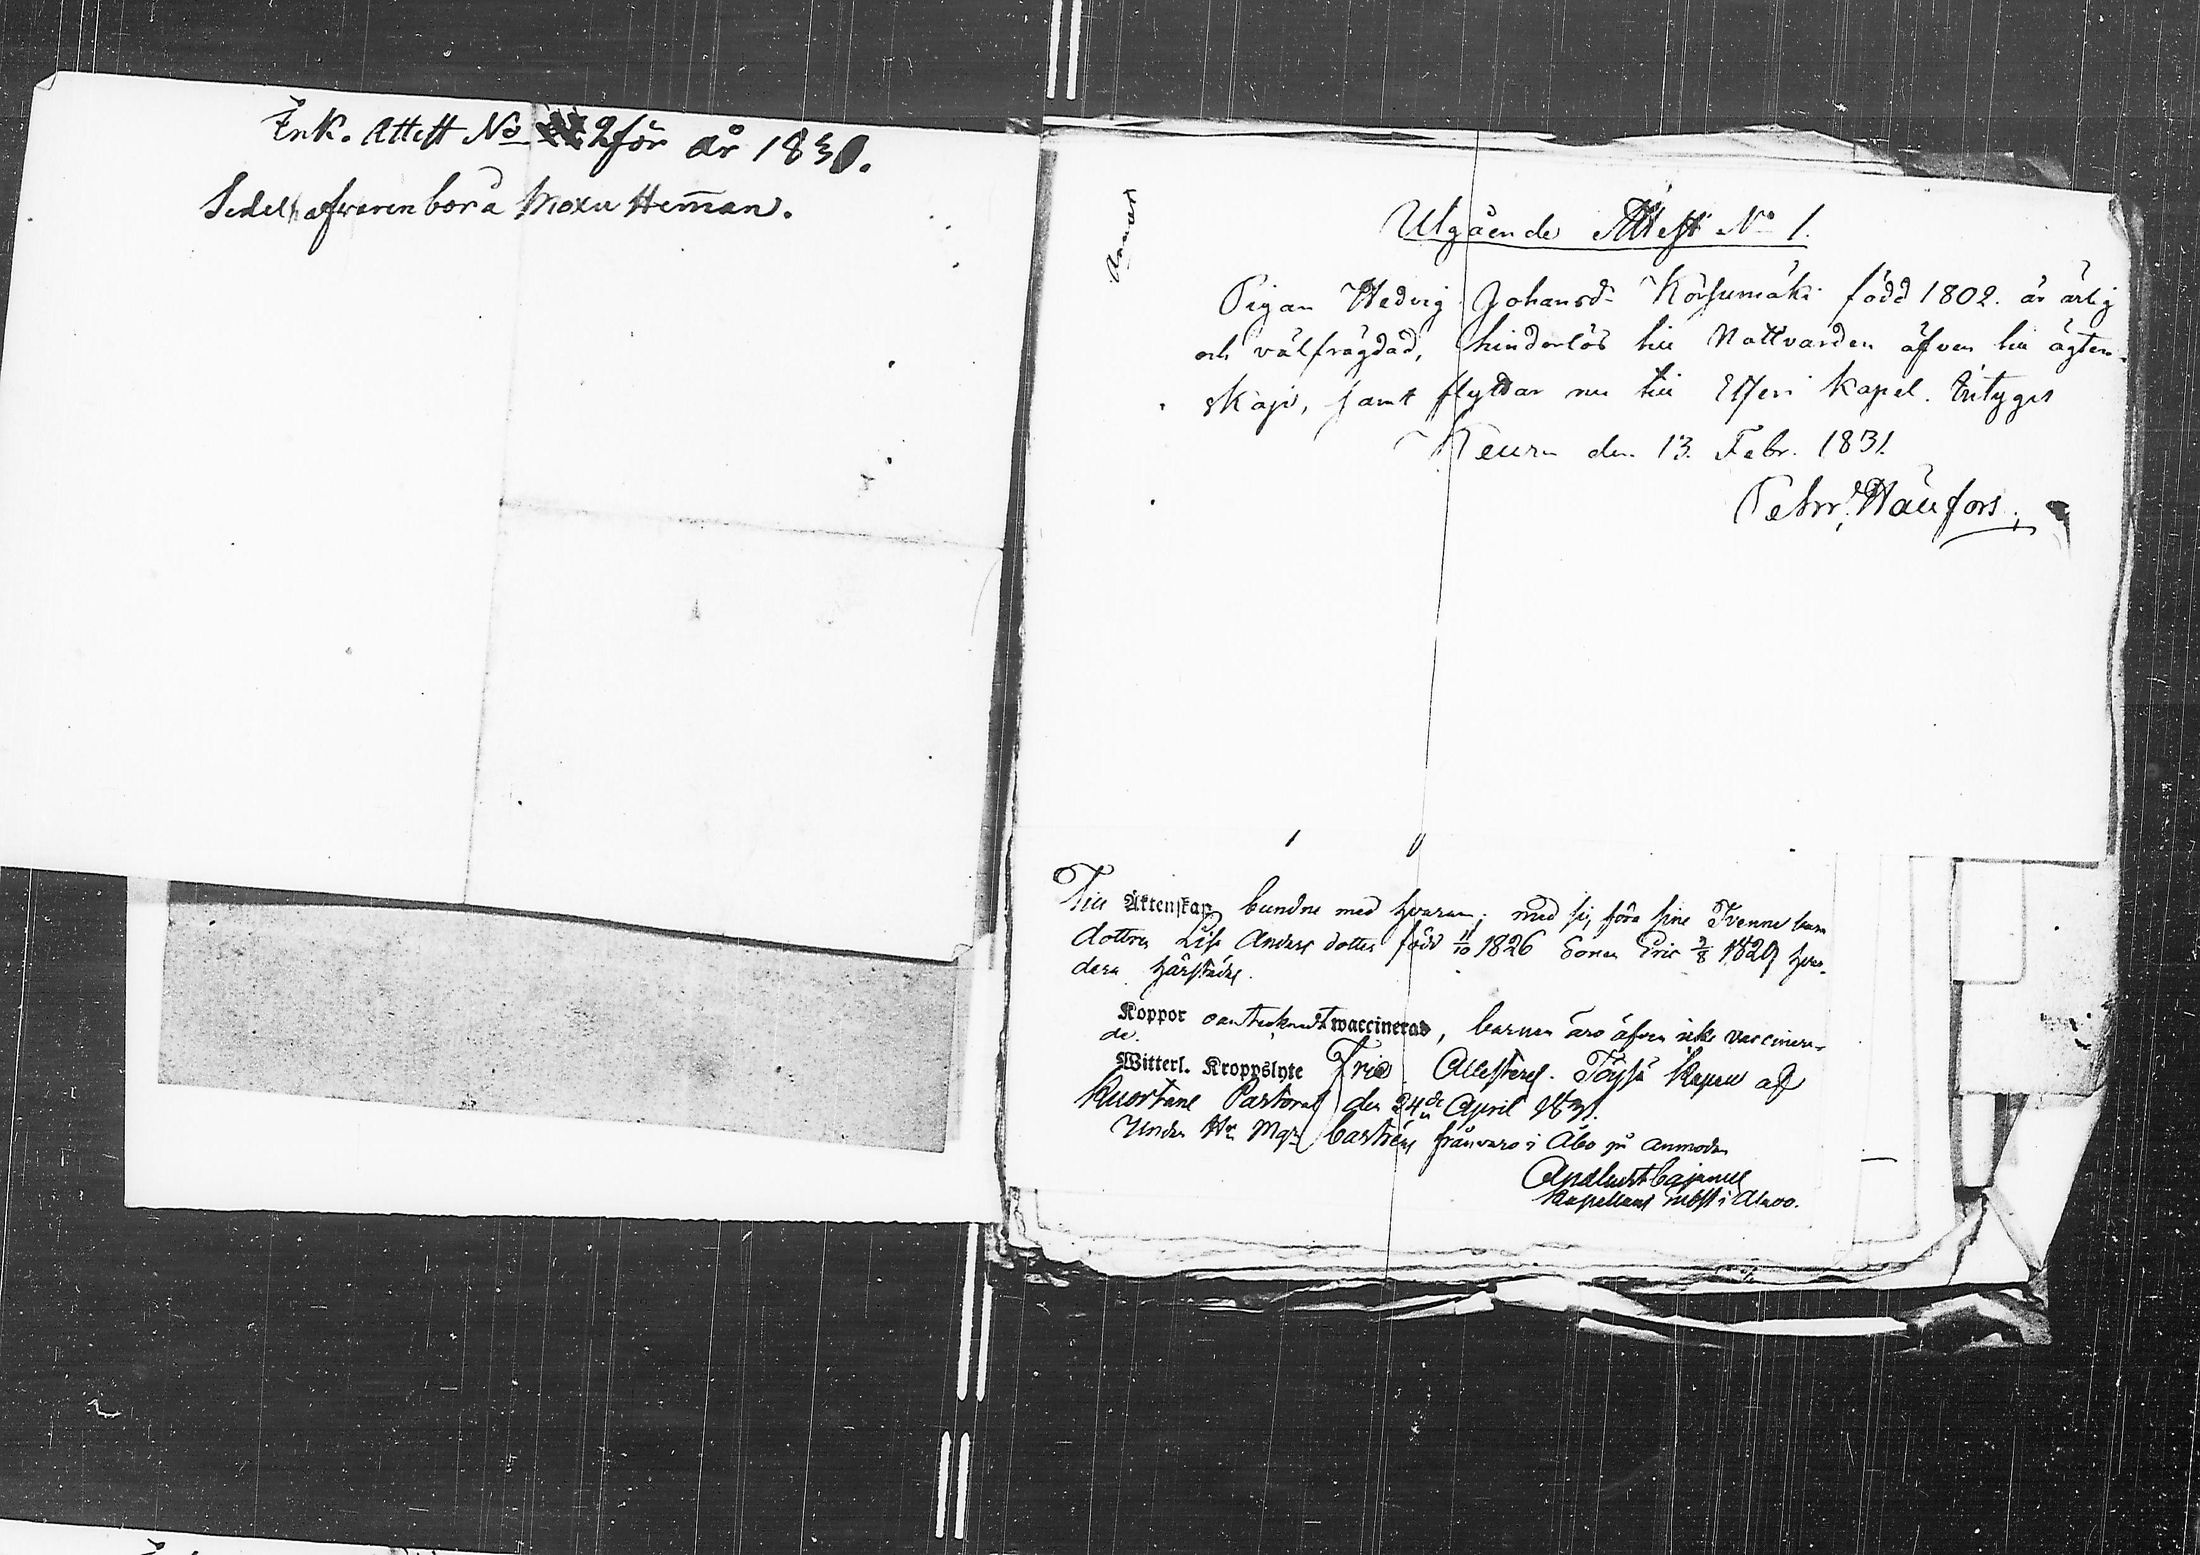 Ink. Attest No 2 för år 1831.
Sedelhafwaren bor å Moxu Hemman.
Utgående Attest No 1.
Pigan Hedvig Johansd. Korsumäki född 1802. är ärlig
och välfrägdad, hinderlös till Nattvarden äfven till ägten-
skap, samt flyttar nu till Etseri Kapel. Intygas
Keuru den 13. Febr. 1831.
Petr. Hällfors.
Till Äktenskap bundne med hvaran; med sig föra sine Tvenne barn
dottren Lisa Anders dotter född 11/10 1826 Sonen Eric 2/8 1829 hva-
dera härstädes.
Koppor oantecknadt waccinerad, barnen äro äfven icke vaccinera-
de.
Witterl. Kroppslyte Fria. Attesteras. Töysä Kapell af
Kuortane Pastorat den 24de April 1831.
Under Hr Mgr Castréns frånvaro i Åbo på anmodan
Cajanus
Kapellans i Alavo.